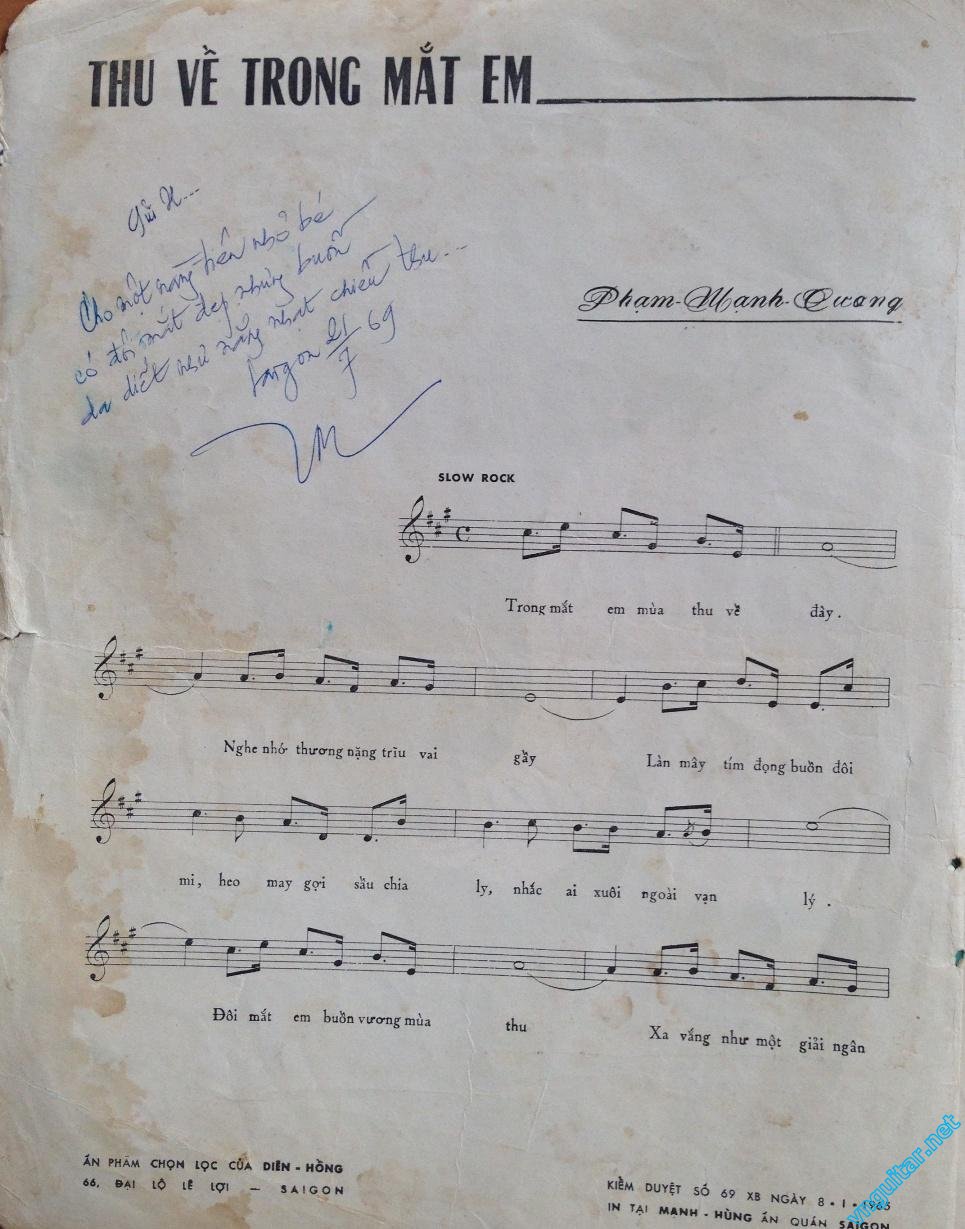 THU VỀ TRONG MẮT EM
Gửi H...
Cho một nàng tiên nhỏ bé
có đôi mắt đẹp nhưng buồn
da diết như nắng nhạt chiều thu...
Saigon 21/7 69
Phạm-Mạnh-Cương
SLOW ROCK
Trong mắt em mùa thu về đây.
Nghe nhớ thương nặng trĩu vai gầy Làn mây tím đọng buồn đôi
mi, heo may gợi sầu chia ly, nhắc ai xuôi ngoài vạn lý.
Đôi mắt em buồn vương mùa thu Xa vắng như một giải ngân
ẤN PHẨM CHỌN LỌC CỦA DIÊN - HỒNG
66, ĐẠI LỘ LÊ LỢI — SAIGON
KIỂM DUYỆT SỐ 69 XB NGÀY 8 • 1 • 1965
IN TẠI MẠNH - HÙNG ẤN QUÁN SAIGON
vnguitar.net